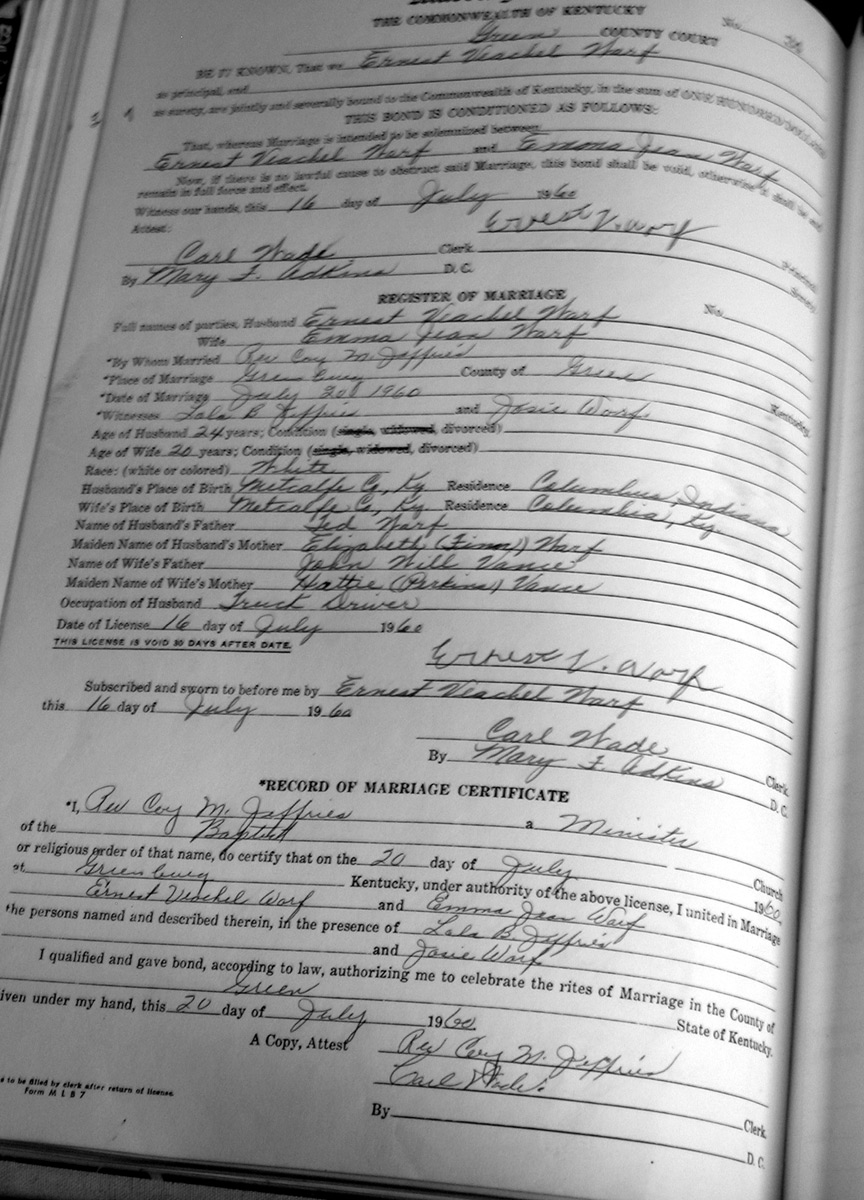 THE COMMONWEALTH OF KENTUCKY
No.
Green COUNTY COURT
BE IT KNOWN, That we Ernest Viachel Warf
as principal, and
as surety, are jointly and severally bound to the Commonwealth of Kentucky, in the sum of ONE HUNDRED DOLLARS
THIS BOND IS CONDITIONED AS FOLLOWS:
That, whereas Marriage is intended to be solemnized between
Ernest Viachel Warf and Emma Jean Warf
Now, if there is no lawful cause to obstruct said Marriage, this bond shall be void, otherwise it shall be and
remain in full force and effect.
Witness our hands, this 16 day of July 1960
Attest: Ernest V. Worf
Principal
Carl Wade Clerk
Surety
By Mary F. Adkins D. C.
REGISTER OF MARRIAGE
No.
Full names of parties, Husband Ernest Viachel Warf
Wife Emma Jean Warf
*By Whom Married Rev Coy M. Jeffries
*Place of Marriage Greensburg County of Green Kentucky.
*Date of Marriage July 20 1960
*Witnesses Lala B Jeffries and Josie Worf
Age of Husband 24 years; Condition (single, widowed, divorced)
Age of Wife 20 years; Condition (single, widowed, divorced)
Race: (white or colored) White
Husband's Place of Birth Metcalfe Co, Ky Residence Columbus, Indiana
Wife's Place of Birth Metcalfe Co, Ky Residence Columbia, Ky
Name of Husband's Father Ted Warf
Maiden Name of Husband's Mother Elizabeth (Finn) Warf
Name of Wife's Father John Will Vance
Maiden Name of Wife's Mother Hattie (Perkins) Vance
Occupation of Husband Truck Driver
Date of License 16 day of July 1960
THIS LICENSE IS VOID 30 DAYS AFTER DATE.
Ernest V. Worf
Subscribed and sworn to before me by Ernest Viachel Warf
this 16 day of July 1960
Carl Wade Clerk
By Mary F. Adkins D. C.
*RECORD OF MARRIAGE CERTIFICATE
*I, Rev Coy M. Jeffries a Minister
of the Baptist Church
or religious order of that name, do certify that on the 20 day of July 1960
at Greensburg Kentucky, under authority of the above license, I united in Marriage
Ernest Viachel Worf and Emma Jean Warf
the persons named and described therein, in the presence of Lala B Jeffries
and Josie Worf
I qualified and gave bond, according to law, authorizing me to celebrate the rites of Marriage in the County of
Green State of Kentucky.
iven under my hand, this 20 day of July 1960
Rev Coy M. Jeffries
A Copy, Attest
Carl Wade Clerk
By D. C.
to be filled by clerk after return of license
Form M L B 7